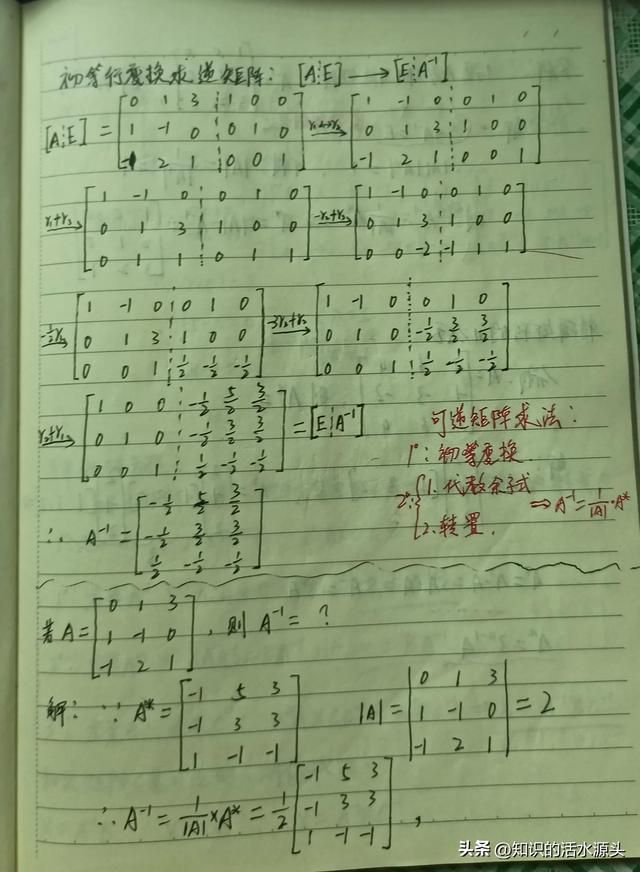 初等行变换求逆矩阵: [A⋮E] ⟶ [E⋮A⁻¹]
[A⋮E] = [0 1 3 ⋮ 1 0 0; 1 -1 0 ⋮ 0 1 0; -1 2 1 ⋮ 0 0 1] r₁↔r₂→ [1 -1 0 ⋮ 0 1 0; 0 1 3 ⋮ 1 0 0; -1 2 1 ⋮ 0 0 1]
r₁+r₃→ [1 -1 0 ⋮ 0 1 0; 0 1 3 ⋮ 1 0 0; 0 1 1 ⋮ 0 1 1] -r₂+r₃→ [1 -1 0 ⋮ 0 1 0; 0 1 3 ⋮ 1 0 0; 0 0 -2 ⋮ -1 1 1]
-½r₃→ [1 -1 0 ⋮ 0 1 0; 0 1 3 ⋮ 1 0 0; 0 0 1 ⋮ ½ -½ -½] -3r₃+r₂→ [1 -1 0 ⋮ 0 1 0; 0 1 0 ⋮ -½ 3/2 3/2; 0 0 1 ⋮ ½ -½ -½]
r₂+r₁→ [1 0 0 ⋮ -½ 5/2 3/2; 0 1 0 ⋮ -½ 3/2 3/2; 0 0 1 ⋮ ½ -½ -½] = [E⋮A⁻¹]
可逆矩阵求法:
1°: 初等变换
2°: { 1. 代数余子式
2. 转置.
⇒ A⁻¹ = 1/|A| · A*
∴ A⁻¹ = [-½ 5/2 3/2; -½ 3/2 3/2; ½ -½ -½]
若A = [0 1 3; 1 -1 0; -1 2 1], 则 A⁻¹ = ?
解: ∵ A* = [-1 5 3; -1 3 3; 1 -1 -1] |A| = |0 1 3; 1 -1 0; -1 2 1| = 2
∴ A⁻¹ = 1/|A| × A* = ½ [-1 5 3; -1 3 3; 1 -1 -1],
头条 @知识的活水源头